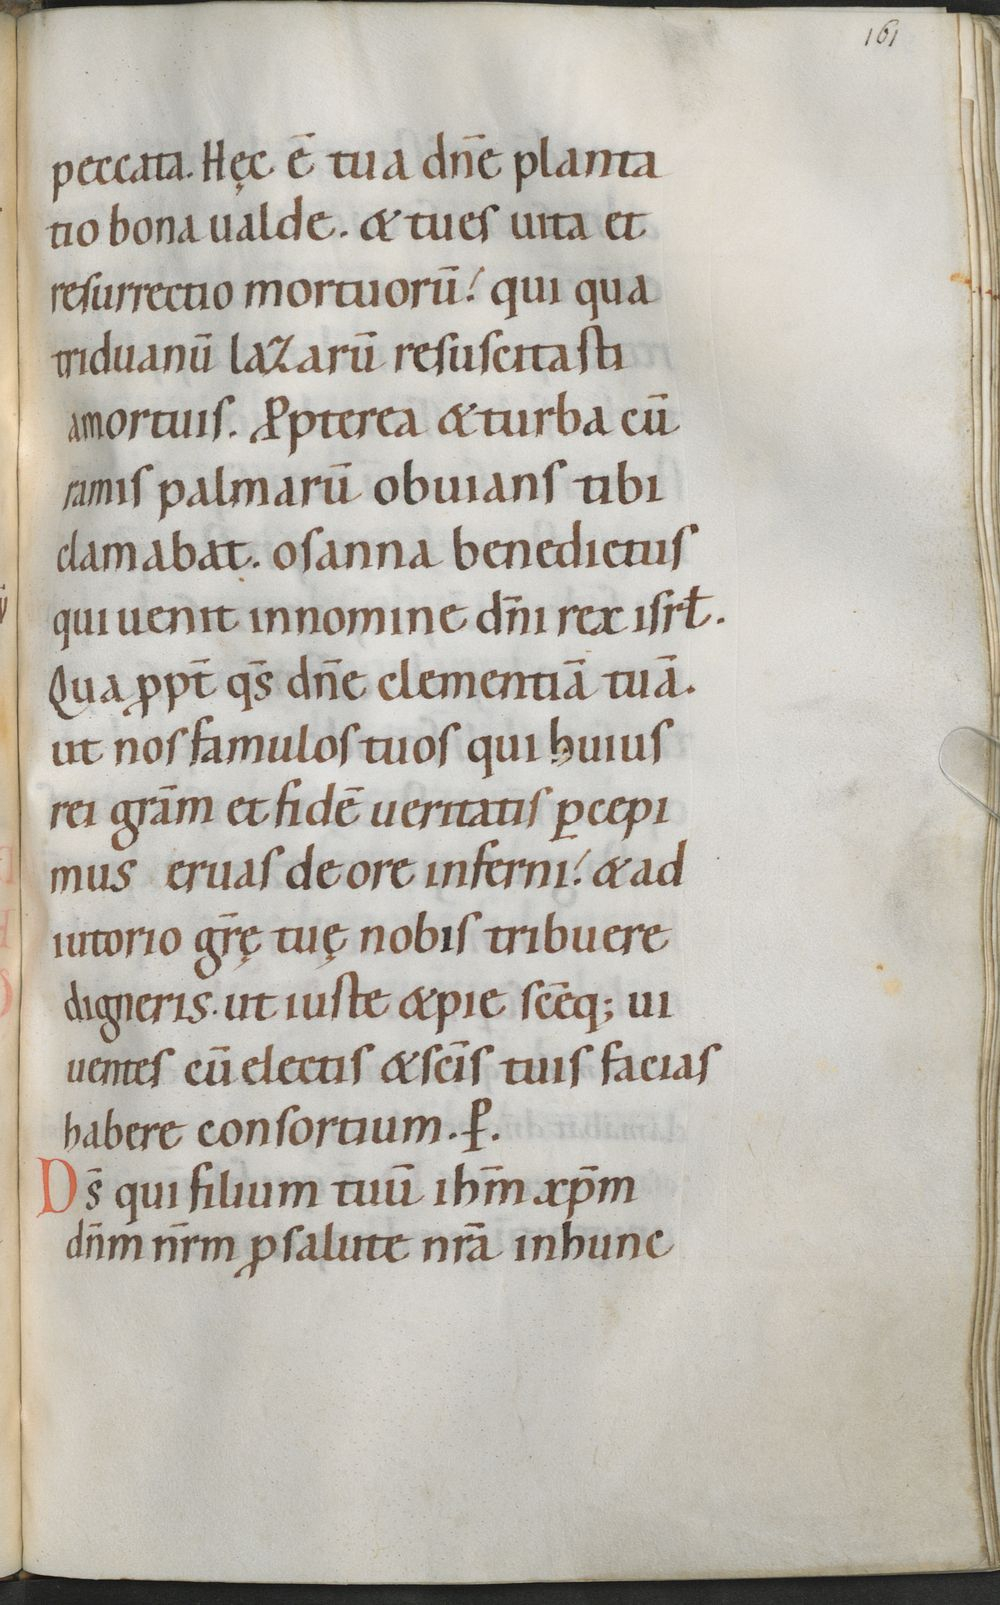 161
peccata. Hęc ē tua dn̄e planta
tio bona ualde. & tu es uita et
resurrectio mortuorū! qui qua
triduanū lazarū resuscitasti
a mortuis. Ꝓpterea & turba cū
ramis palmarū obuians tibi
clamabat. osanna benedictus
qui uenit in nomine dn̄i rex isrł.
Qua ꝓpt̄ qs̄ dn̄e clementiā tuā.
ut nos famulos tuos qui huius
rei grām et fidē ueritatis ꝑcepi
mus eruas de ore inferni! & ad
iutorio gr̄ę tuę nobis tribuere
digneris. ut iuste & pie scēq; ui
uentes cū electis & scīs tuis facias
habere consortium. ꝑ.
Ds̄ qui filium tuū ihm̄ xp̄m
dn̄m nr̄m ꝓ salute nrā in hunc